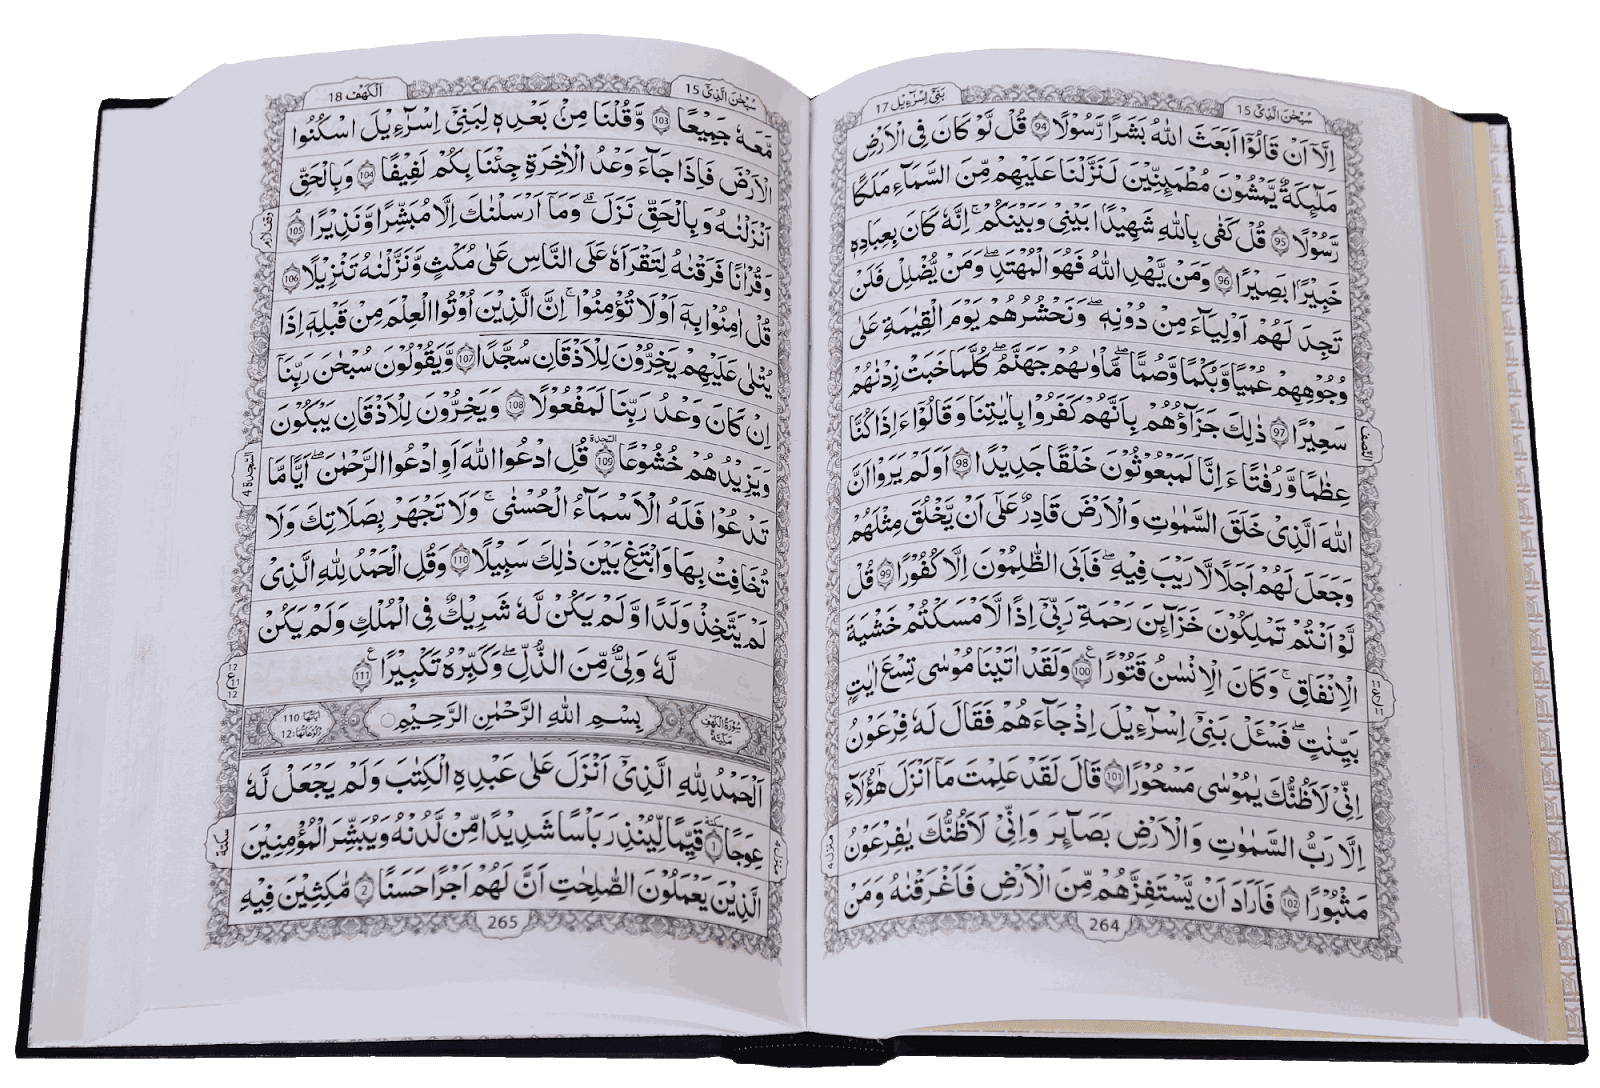 سُبْحٰنَ الَّذِیْۤ 15
بَنِیْۤ اِسْرَآءِیْل 17
اِلَّاۤ اَنْ قَالُوْۤا اَبَعَثَ اللّٰهُ بَشَرًا رَّسُوْلًا 94 قُلْ لَّوْ كَانَ فِی الْاَرْضِ
مَلٰٓىِٕكَةٌ یَّمْشُوْنَ مُطْمَىِٕنِّیْنَ لَنَزَّلْنَا عَلَیْهِمْ مِّنَ السَّمَآءِ مَلَكًا
رَّسُوْلًا 95 قُلْ كَفٰی بِاللّٰهِ شَهِیْدًۢا بَیْنِیْ وَبَیْنَكُمْ ؕ اِنَّهٗ كَانَ بِعِبَادِهٖ
خَبِیْرًۢا بَصِیْرًا 96 وَمَنْ یَّهْدِ اللّٰهُ فَهُوَ الْمُهْتَدِ ۚ وَمَنْ یُّضْلِلْ فَلَنْ
تَجِدَ لَهُمْ اَوْلِیَآءَ مِنْ دُوْنِهٖ ؕ وَنَحْشُرُهُمْ یَوْمَ الْقِیٰمَةِ عَلٰی
وُجُوْهِهِمْ عُمْیًا وَّبُكْمًا وَّصُمًّا ؕ مَاْوٰىهُمْ جَهَنَّمُ ؕ كُلَّمَا خَبَتْ زِدْنٰهُمْ
سَعِیْرًا 97 ذٰلِكَ جَزَآؤُهُمْ بِاَنَّهُمْ كَفَرُوْا بِاٰیٰتِنَا وَقَالُوْۤا ءَاِذَا كُنَّا
النصف
عِظٰمًا وَّرُفٰتًا ءَاِنَّا لَمَبْعُوْثُوْنَ خَلْقًا جَدِیْدًا 98 اَوَلَمْ یَرَوْا اَنَّ
اللّٰهَ الَّذِیْ خَلَقَ السَّمٰوٰتِ وَالْاَرْضَ قَادِرٌ عَلٰۤی اَنْ یَّخْلُقَ مِثْلَهُمْ
وَجَعَلَ لَهُمْ اَجَلًا لَّا رَیْبَ فِیْهِ ؕ فَاَبَی الظّٰلِمُوْنَ اِلَّا كُفُوْرًا 99 قُلْ
لَّوْ اَنْتُمْ تَمْلِكُوْنَ خَزَآىِٕنَ رَحْمَةِ رَبِّیْۤ اِذًا لَّاَمْسَكْتُمْ خَشْیَةَ
الْاِنْفَاقِ ؕ وَكَانَ الْاِنْسٰنُ قَتُوْرًا 100 وَلَقَدْ اٰتَیْنَا مُوْسٰی تِسْعَ اٰیٰتٍۭ
11 ع 11
بَیِّنٰتٍ فَسْـَٔلْ بَنِیْۤ اِسْرَآءِیْلَ اِذْ جَآءَهُمْ فَقَالَ لَهٗ فِرْعَوْنُ
اِنِّیْ لَاَظُنُّكَ یٰمُوْسٰی مَسْحُوْرًا 101 قَالَ لَقَدْ عَلِمْتَ مَاۤ اَنْزَلَ هٰۤؤُلَآءِ
اِلَّا رَبُّ السَّمٰوٰتِ وَالْاَرْضِ بَصَآىِٕرَ وَاِنِّیْ لَاَظُنُّكَ یٰفِرْعَوْنُ
منزل 4
مَثْبُوْرًا 102 فَاَرَادَ اَنْ یَّسْتَفِزَّهُمْ مِّنَ الْاَرْضِ فَاَغْرَقْنٰهُ وَمَنْ
264
سُبْحٰنَ الَّذِیْۤ 15
اَلْكَهْف 18
مَّعَهٗ جَمِیْعًا 103 وَّقُلْنَا مِنْۢ بَعْدِهٖ لِبَنِیْۤ اِسْرَآءِیْلَ اسْكُنُوا
الْاَرْضَ فَاِذَا جَآءَ وَعْدُ الْاٰخِرَةِ جِئْنَا بِكُمْ لَفِیْفًا 104 وَبِالْحَقِّ
اَنْزَلْنٰهُ وَبِالْحَقِّ نَزَلَ ؕ وَمَاۤ اَرْسَلْنٰكَ اِلَّا مُبَشِّرًا وَّنَذِیْرًا 105
وقف لازم
وَقُرْاٰنًا فَرَقْنٰهُ لِتَقْرَاَهٗ عَلَی النَّاسِ عَلٰی مُكْثٍ وَّنَزَّلْنٰهُ تَنْزِیْلًا 106
قُلْ اٰمِنُوْا بِهٖۤ اَوْلَا تُؤْمِنُوْا ؕ اِنَّ الَّذِیْنَ اُوْتُوا الْعِلْمَ مِنْ قَبْلِهٖۤ اِذَا
یُتْلٰی عَلَیْهِمْ یَخِرُّوْنَ لِلْاَذْقَانِ سُجَّدًا 107 وَّیَقُوْلُوْنَ سُبْحٰنَ رَبِّنَاۤ
اِنْ كَانَ وَعْدُ رَبِّنَا لَمَفْعُوْلًا 108 وَیَخِرُّوْنَ لِلْاَذْقَانِ یَبْكُوْنَ
وَیَزِیْدُهُمْ خُشُوْعًا 109 السجدة قُلِ ادْعُوا اللّٰهَ اَوِ ادْعُوا الرَّحْمٰنَ ؕ اَیًّا مَّا
السجدة 4
تَدْعُوْا فَلَهُ الْاَسْمَآءُ الْحُسْنٰی ۚ وَلَا تَجْهَرْ بِصَلَاتِكَ وَلَا
تُخَافِتْ بِهَا وَابْتَغِ بَیْنَ ذٰلِكَ سَبِیْلًا 110 وَقُلِ الْحَمْدُ لِلّٰهِ الَّذِیْ
لَمْ یَتَّخِذْ وَلَدًا وَّلَمْ یَكُنْ لَّهٗ شَرِیْكٌ فِی الْمُلْكِ وَلَمْ یَكُنْ
لَّهٗ وَلِیٌّ مِّنَ الذُّلِّ وَكَبِّرْهُ تَكْبِیْرًا 111
12 ع 11 12
سُوْرَةُ الْكَهْفِ مَكِّيَّةٌ
بِسْمِ اللّٰهِ الرَّحْمٰنِ الرَّحِیْمِ
اٰیَاتُهَا: 110
رُكُوْعَاتُهَا: 12
اَلْحَمْدُ لِلّٰهِ الَّذِیْۤ اَنْزَلَ عَلٰی عَبْدِهِ الْكِتٰبَ وَلَمْ یَجْعَلْ لَّهٗ
عِوَجًا 1 سكتة قَیِّمًا لِّیُنْذِرَ بَاْسًا شَدِیْدًا مِّنْ لَّدُنْهُ وَیُبَشِّرَ الْمُؤْمِنِیْنَ
منزل 4
سكتة
الَّذِیْنَ یَعْمَلُوْنَ الصّٰلِحٰتِ اَنَّ لَهُمْ اَجْرًا حَسَنًا 2 مَّاكِثِیْنَ فِیْهِ
265